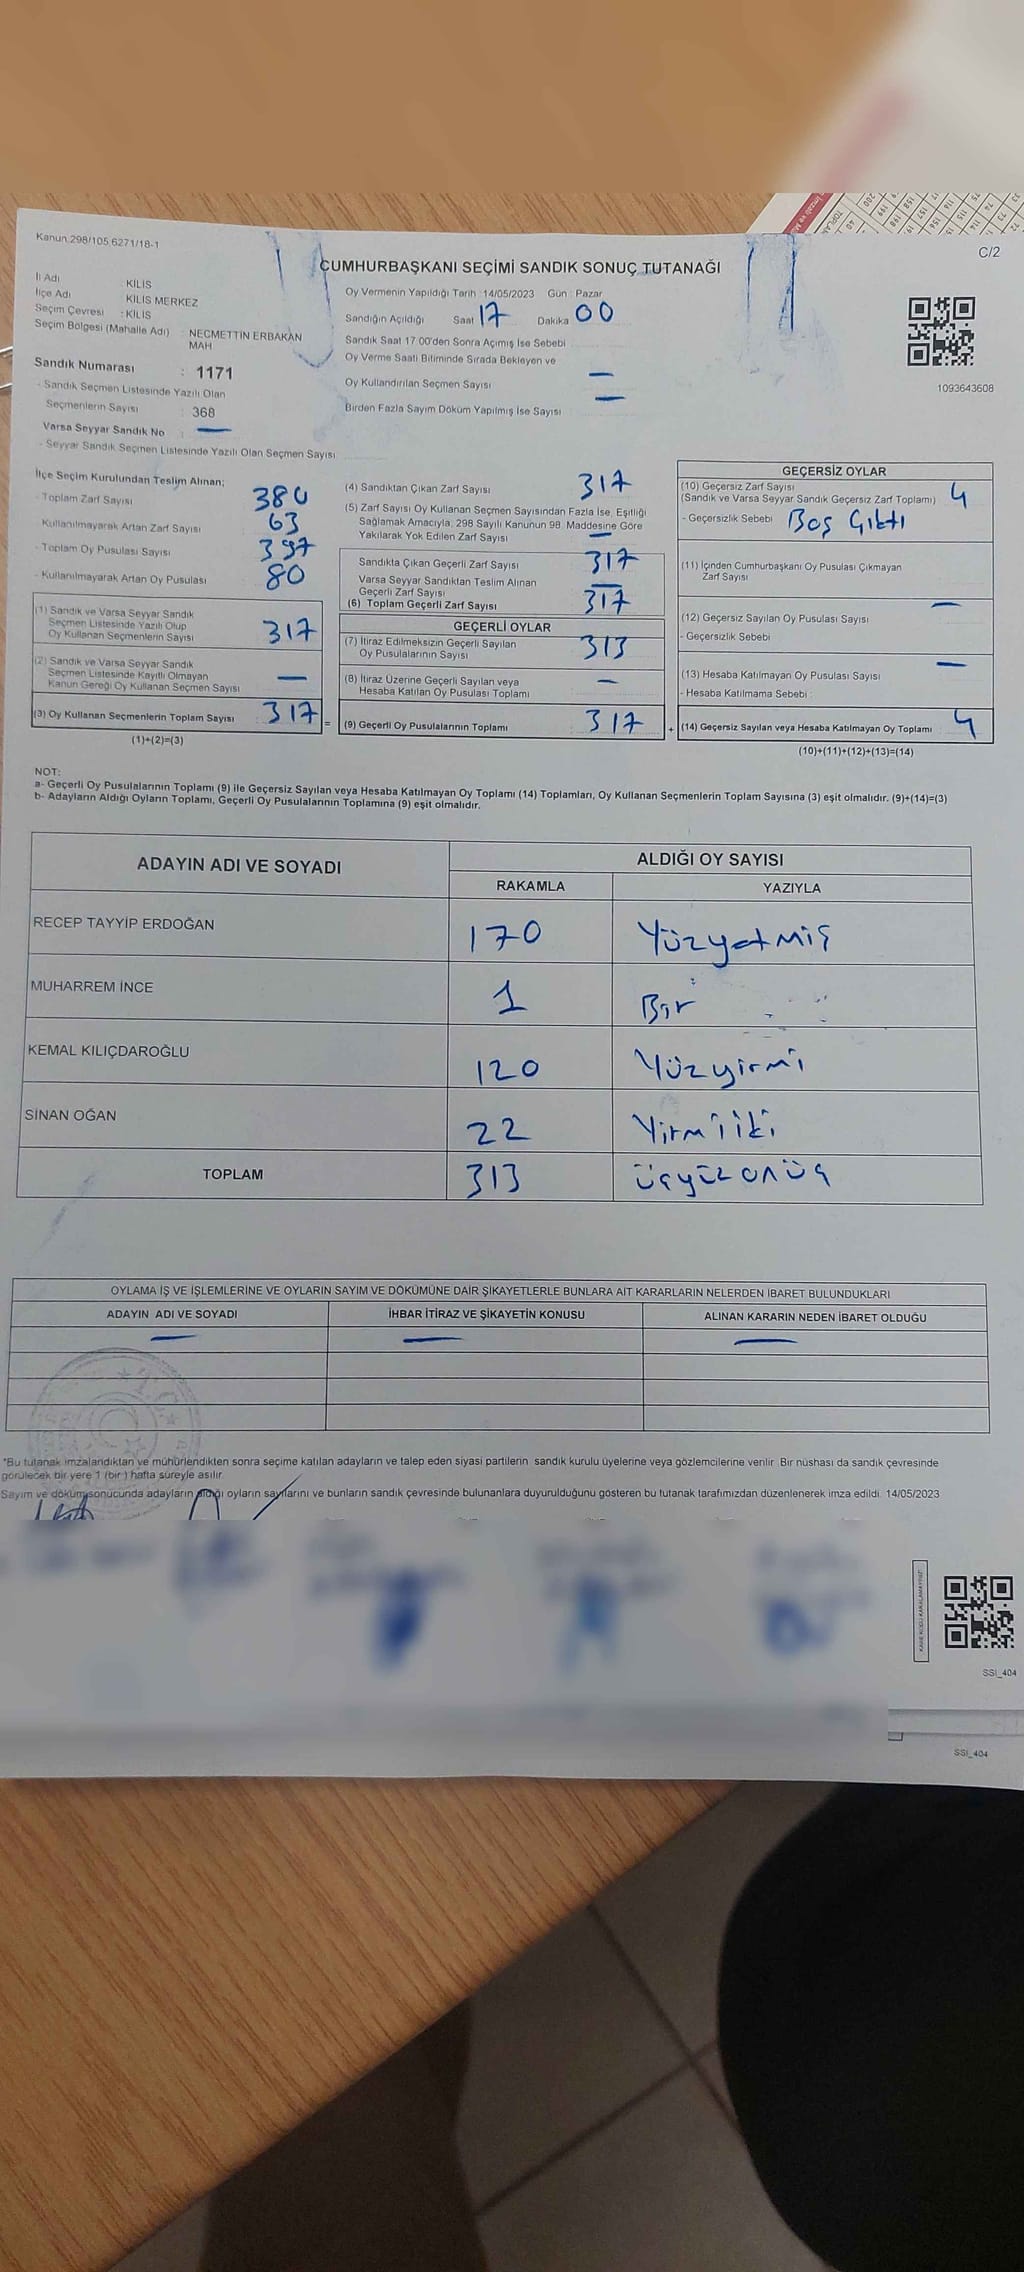 Kanun 298/105 6271/18-1
C/2
CUMHURBAŞKANI SEÇİMİ SANDIK SONUÇ TUTANAĞI
İl Adı : KİLİS
İlçe Adı : KİLİS MERKEZ
Seçim Çevresi : KİLİS
Seçim Bölgesi (Mahalle Adı) : NECMETTİN ERBAKAN
MAH
Sandık Numarası : 1171
- Sandık Seçmen Listesinde Yazılı Olan
Seçmenlerin Sayısı : 368
Varsa Seyyar Sandık No : —
- Seyyar Sandık Seçmen Listesinde Yazılı Olan Seçmen Sayısı
Oy Vermenin Yapıldığı Tarih : 14/05/2023 Gün : Pazar
Sandığın Açıldığı Saat 17 Dakika 00
Sandık Saat 17:00'den Sonra Açımış İse Sebebi
Oy Verme Saati Bitiminde Sırada Bekleyen ve
Oy Kullandırılan Seçmen Sayısı —
Birden Fazla Sayım Döküm Yapılmış İse Sayısı —
1093643608
İlçe Seçim Kurulundan Teslim Alınan;
- Toplam Zarf Sayısı 380
- Kullanılmayarak Artan Zarf Sayısı 63
- Toplam Oy Pusulası Sayısı 397
- Kullanılmayarak Artan Oy Pusulası 80
(1) Sandık ve Varsa Seyyar Sandık
Seçmen Listesinde Yazılı Olup
Oy Kullanan Seçmenlerin Sayısı 317
(2) Sandık ve Varsa Seyyar Sandık
Seçmen Listesinde Kayıtlı Olmayan
Kanun Gereği Oy Kullanan Seçmen Sayısı —
(3) Oy Kullanan Seçmenlerin Toplam Sayısı 317 =
(1)+(2)=(3)
(4) Sandıktan Çıkan Zarf Sayısı 317
(5) Zarf Sayısı Oy Kullanan Seçmen Sayısından Fazla İse, Eşitliği
Sağlamak Amacıyla, 298 Sayılı Kanunun 98. Maddesine Göre
Yakılarak Yok Edilen Zarf Sayısı —
Sandıkta Çıkan Geçerli Zarf Sayısı 317
Varsa Seyyar Sandıktan Teslim Alınan
Geçerli Zarf Sayısı —
(6) Toplam Geçerli Zarf Sayısı 317
GEÇERLİ OYLAR
(7) İtiraz Edilmeksizin Geçerli Sayılan
Oy Pusulalarının Sayısı 313
(8) İtiraz Üzerine Geçerli Sayılan veya
Hesaba Katılan Oy Pusulası Toplamı —
(9) Geçerli Oy Pusulalarının Toplamı 317 +
GEÇERSİZ OYLAR
(10) Geçersiz Zarf Sayısı
(Sandık ve Varsa Seyyar Sandık Geçersiz Zarf Toplamı) 4
- Geçersizlik Sebebi Boş Çıktı
(11) İçinden Cumhurbaşkanı Oy Pusulası Çıkmayan
Zarf Sayısı —
(12) Geçersiz Sayılan Oy Pusulası Sayısı
- Geçersizlik Sebebi —
(13) Hesaba Katılmayan Oy Pusulası Sayısı
- Hesaba Katılmama Sebebi :
(14) Geçersiz Sayılan veya Hesaba Katılmayan Oy Toplamı 4
(10)+(11)+(12)+(13)=(14)
NOT:
a- Geçerli Oy Pusulalarının Toplamı (9) ile Geçersiz Sayılan veya Hesaba Katılmayan Oy Toplamı (14) Toplamları, Oy Kullanan Seçmenlerin Toplam Sayısına (3) eşit olmalıdır. (9)+(14)=(3)
b- Adayların Aldığı Oyların Toplamı, Geçerli Oy Pusulalarının Toplamına (9) eşit olmalıdır.
ADAYIN ADI VE SOYADI ALDIĞI OY SAYISI
RAKAMLA YAZIYLA
RECEP TAYYİP ERDOĞAN 170 Yüzyetmiş
MUHARREM İNCE 1 Bir
KEMAL KILIÇDAROĞLU 120 Yüzyirmi
SİNAN OĞAN 22 Yirmiiki
TOPLAM 313 üçyüzonüç
OYLAMA İŞ VE İŞLEMLERİNE VE OYLARIN SAYIM VE DÖKÜMÜNE DAİR ŞİKAYETLERLE BUNLARA AİT KARARLARIN NELERDEN İBARET BULUNDUKLARI
ADAYIN ADI VE SOYADI İHBAR İTİRAZ VE ŞİKAYETİN KONUSU ALINAN KARARIN NEDEN İBARET OLDUĞU
— — —
T.C.
*Bu tutanak imzalandıktan ve mühürlendikten sonra seçime katılan adayların ve talep eden siyasi partilerin sandık kurulu üyelerine veya gözlemcilerine verilir. Bir nüshası da sandık çevresinde
görülecek bir yere 1 (bir ) hafta süreyle asılır.
Sayım ve döküm sonucunda adayların aldığı oyların sayılarını ve bunların sandık çevresinde bulunanlara duyurulduğunu gösteren bu tutanak tarafımızdan düzenlenerek imza edildi. 14/05/2023
KARE KODU KARALAMAYINIZ!
SSI_404
SSI_404